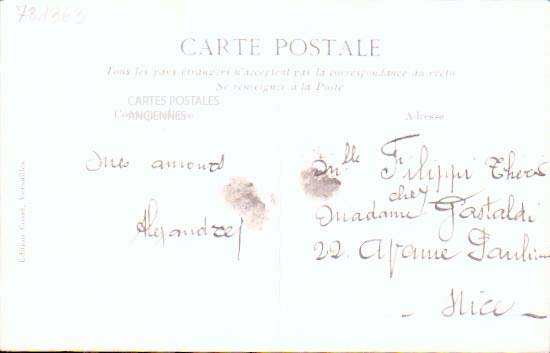 781363
CARTE POSTALE
Tous les pays étrangers n'acceptent pas la correspondance au recto
Se renseigner à la Poste
CARTES POSTALES
ANCIENNES
Adresse
Mes amours
Mlle Filippi
Alexandre
chez
Madame Gastaldi
22. Avenue
Nice
Versailles